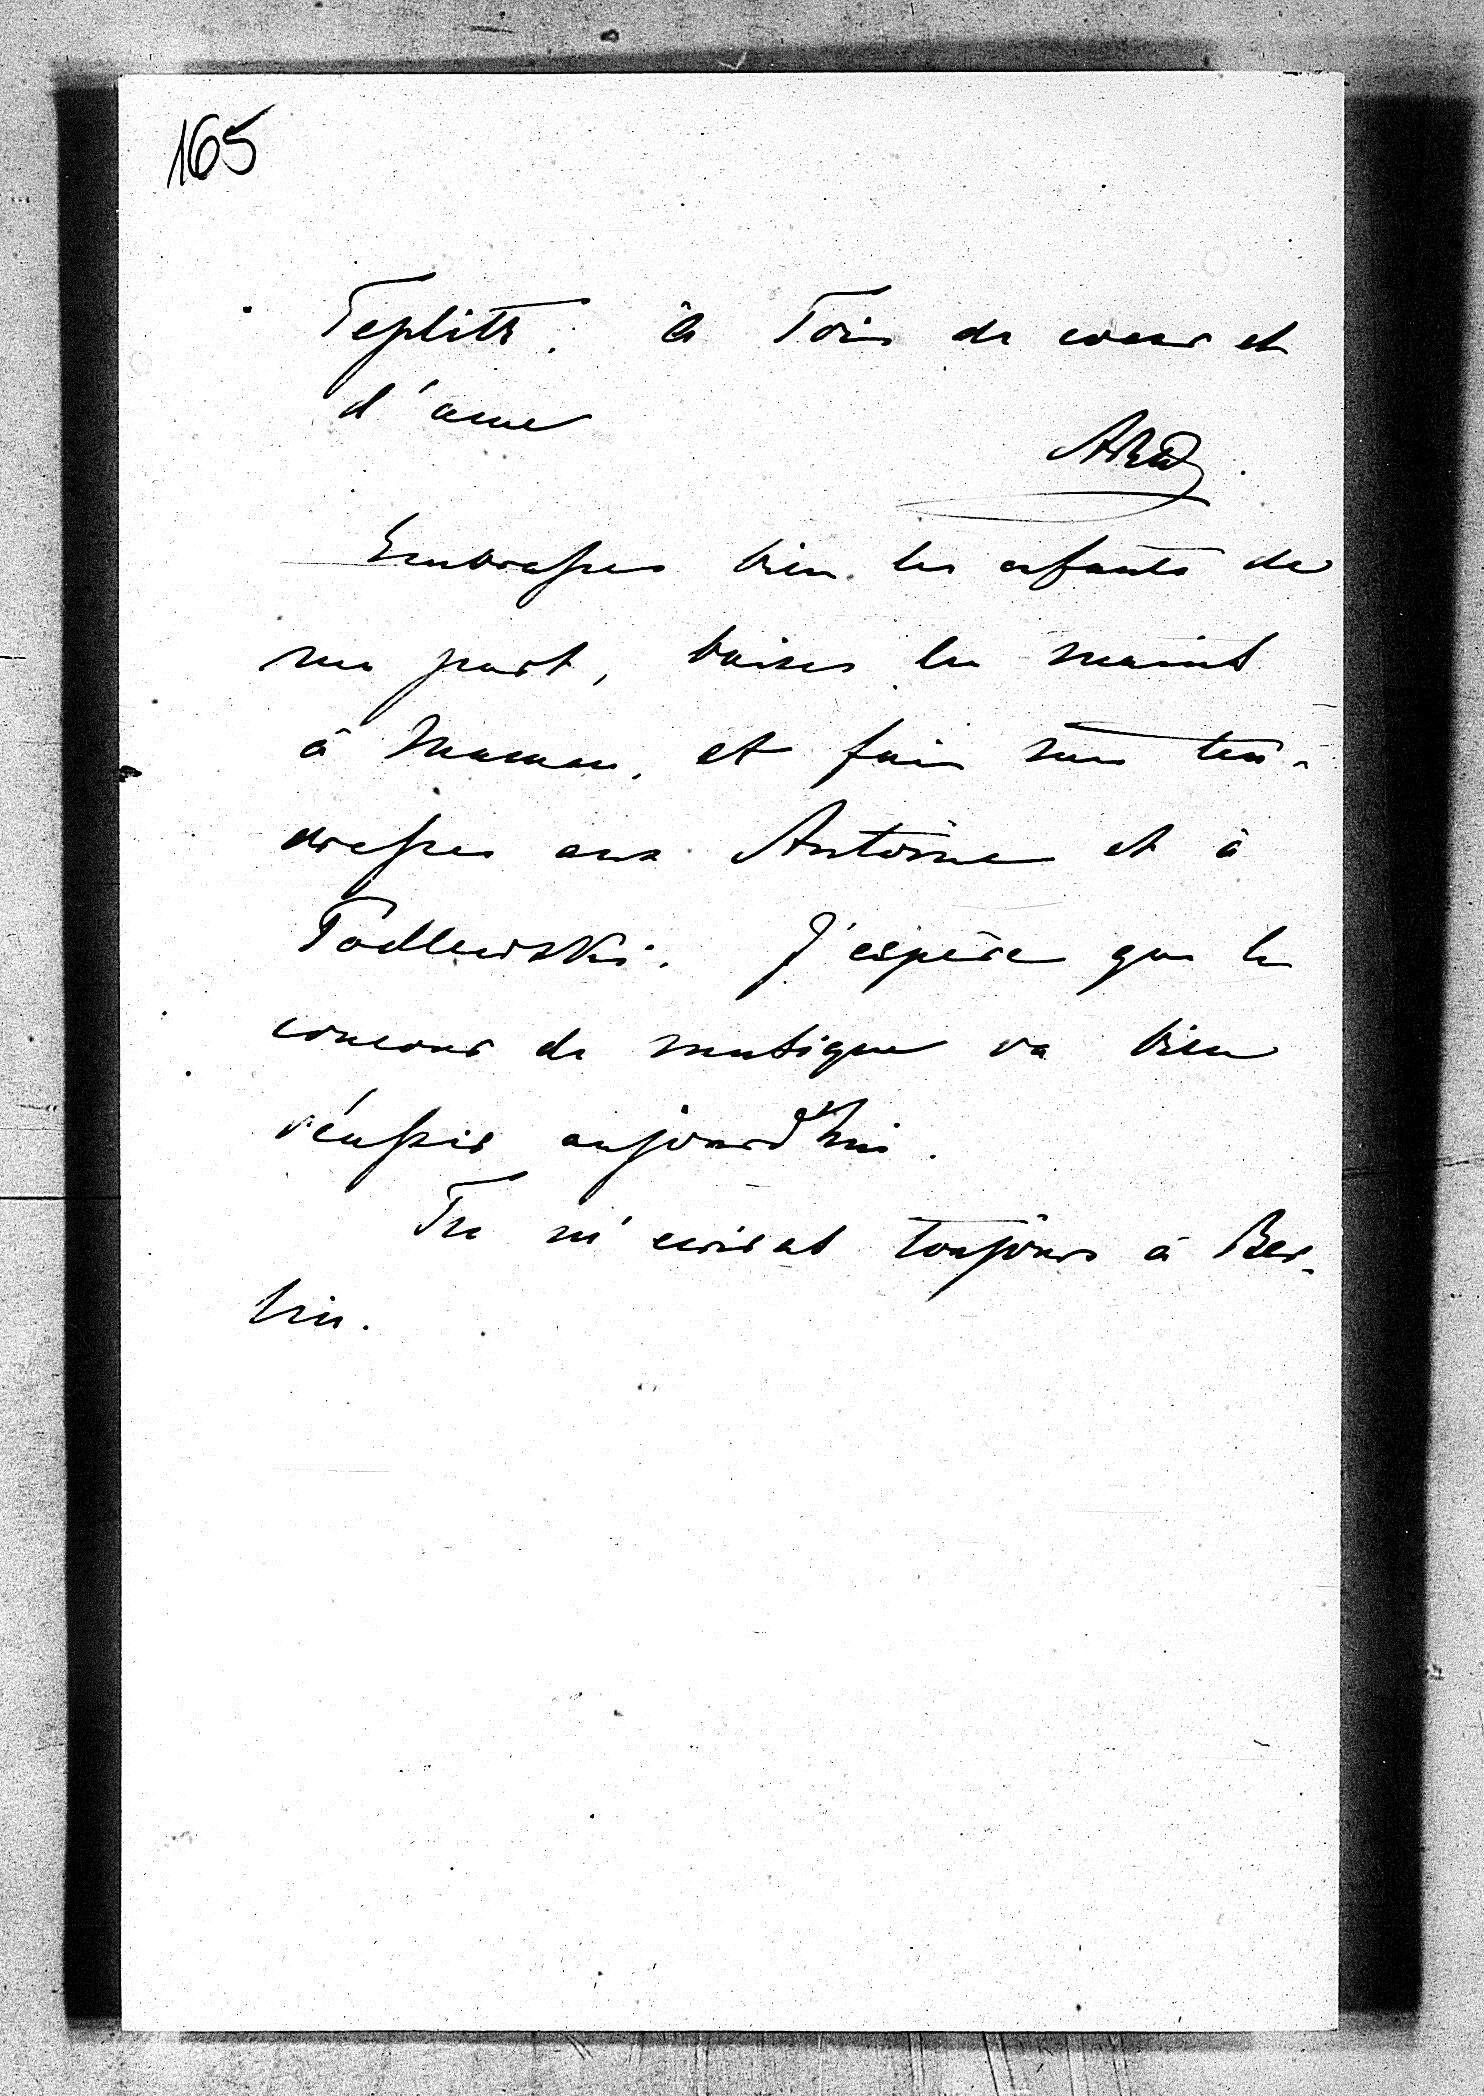 165
Teplitz. à Toi de coeur et
d'ame
Embrasses bien les enfants de
ma part, baises les maints
à Maman, et fais mes ten-
dresses aux Antoine et à
Podlewski. J'espère que le
concour de musique va bien
réussir aujourd'hui.
Tu m'ecriras toujours à Ber-
lin.